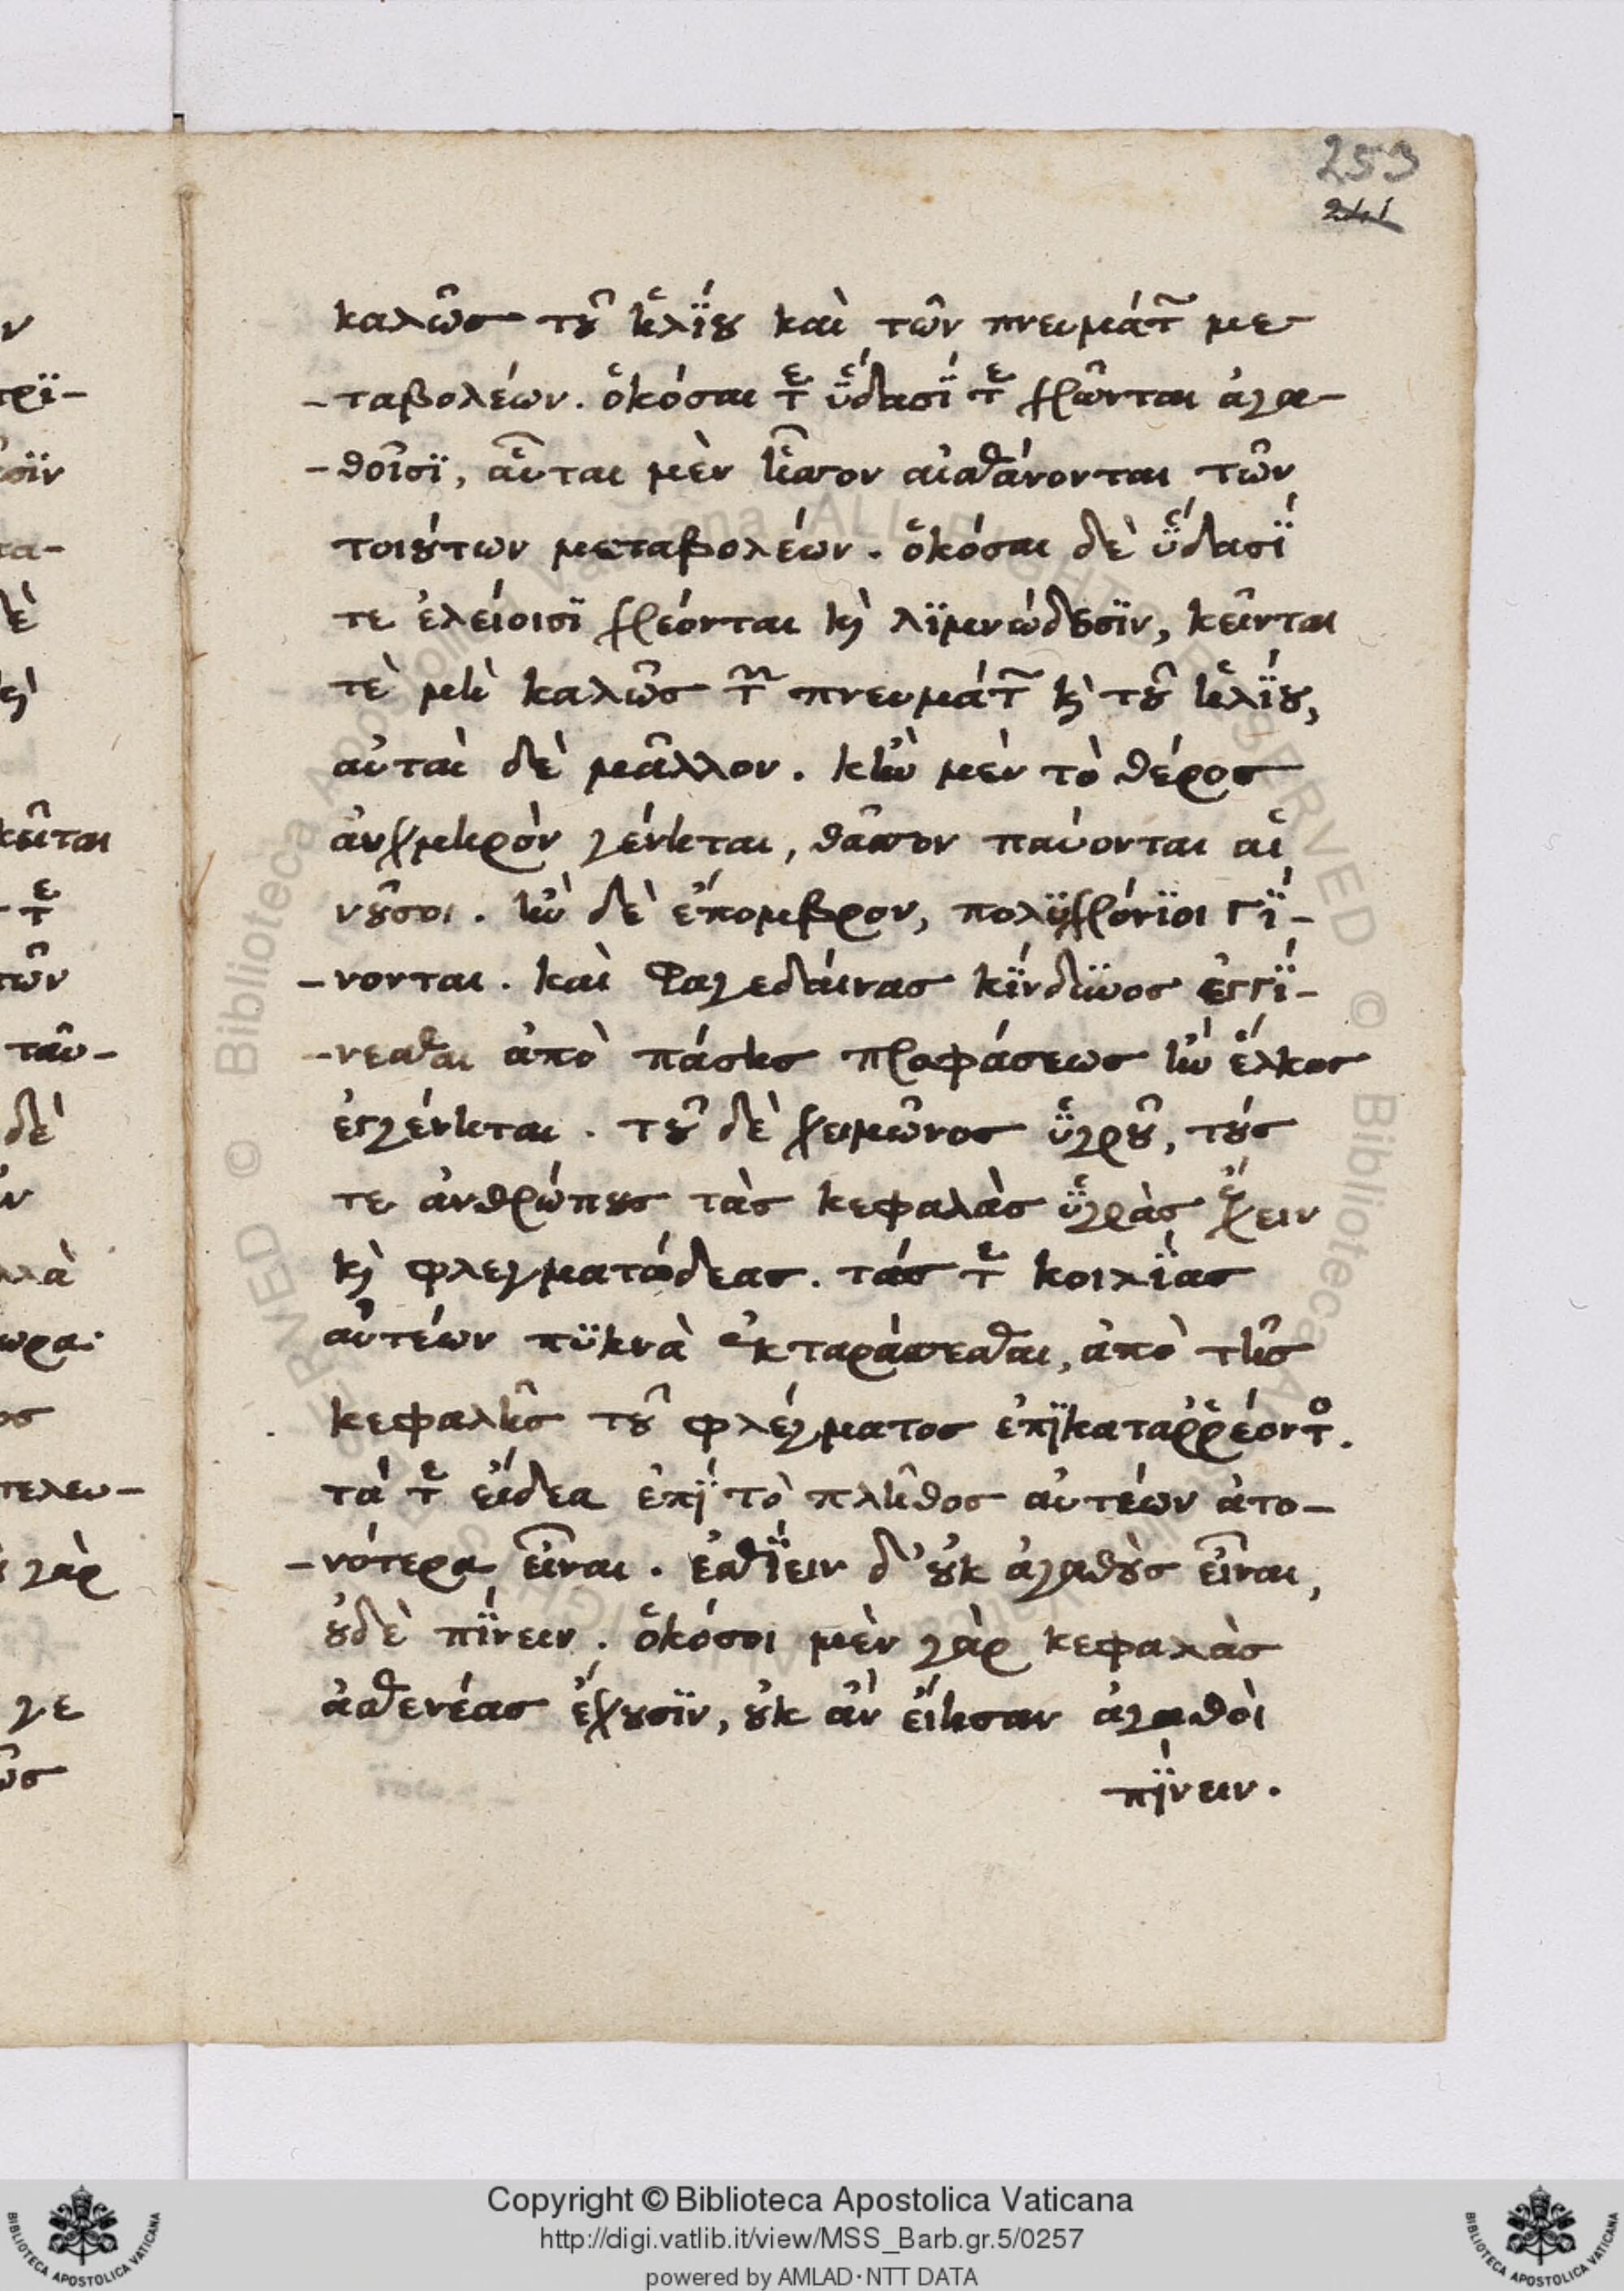 253
241
καλῶσ τοῦ ἡλΐου καὶ τῶν πνευμάτ̃ με
-ταβολέων. ὁκόσαι τε ὕδασΐ τε χρῶνται ἀγα-
-θοῖσϊ, αὗται μὲν ἧσσον αἰσθάνονται τῶν
τοιούτων μεταβολέων. ὁκόσαι δὲ ὕδασΐ
τε ἑλείοισϊ χρέονται κὶ λϊμνώδεσϊν, κεῖνται
τὲ μὴ καλῶσ τῶν πνευμάτ̃ κὶ τοῦ ἡλΐου,
αὐταὶ δὲ μᾶλλον. κἢν μὲν τὸ θέροσ
αὐχμηρὸν γένηται, θᾶσσον παύονται αἱ
νοῦσοι. ἢν δὲ ἔπομβρον, πολϋχρόνϊοι γΐ-
-νονται. καὶ Φαγεδαίνασ κΐνδϋνοσ ἐγγΐ-
-νεσθαι ἀπὸ πάσησ προφάσεωσ ἢν ἕλκοσ
ἐγγένηται. τοῦ δὲ χειμῶνοσ ὑγροῦ, τούσ
τε ἀνθρώπουσ τὰσ κεφαλὰσ ὑγρὰσ ἔχειν
κὶ φλεγματώδεασ. τάσ τε κοιλΐασ
αὐτέων πϋκνὰ ἐκταράσσεσθαι, ἀπὸ τῆσ
κεφαλῆσ τοῦ φλέγματοσ ἐπϊκαταῤῥέοντο.
τά τε εἴδεα ἐπΐ τὸ πλῆθοσ αὐτέων ἀτο-
-νότερα εἶναι. ἐσθΐειν δ' οὐκ ἀγαθοὺσ εἶναι,
οὐδὲ πΐνειν. ὁκόσοι μὲν γὰρ κεφαλὰσ
ἀσθενέασ ἔχουσϊν, οὐκ ἂν εἴησαν ἀγαθοὶ
πΐνειν.
Copyright © Biblioteca Apostolica Vaticana
http://digi.vatlib.it/view/MSS_Barb.gr.5/0257
powered by AMLAD·NTT DATA